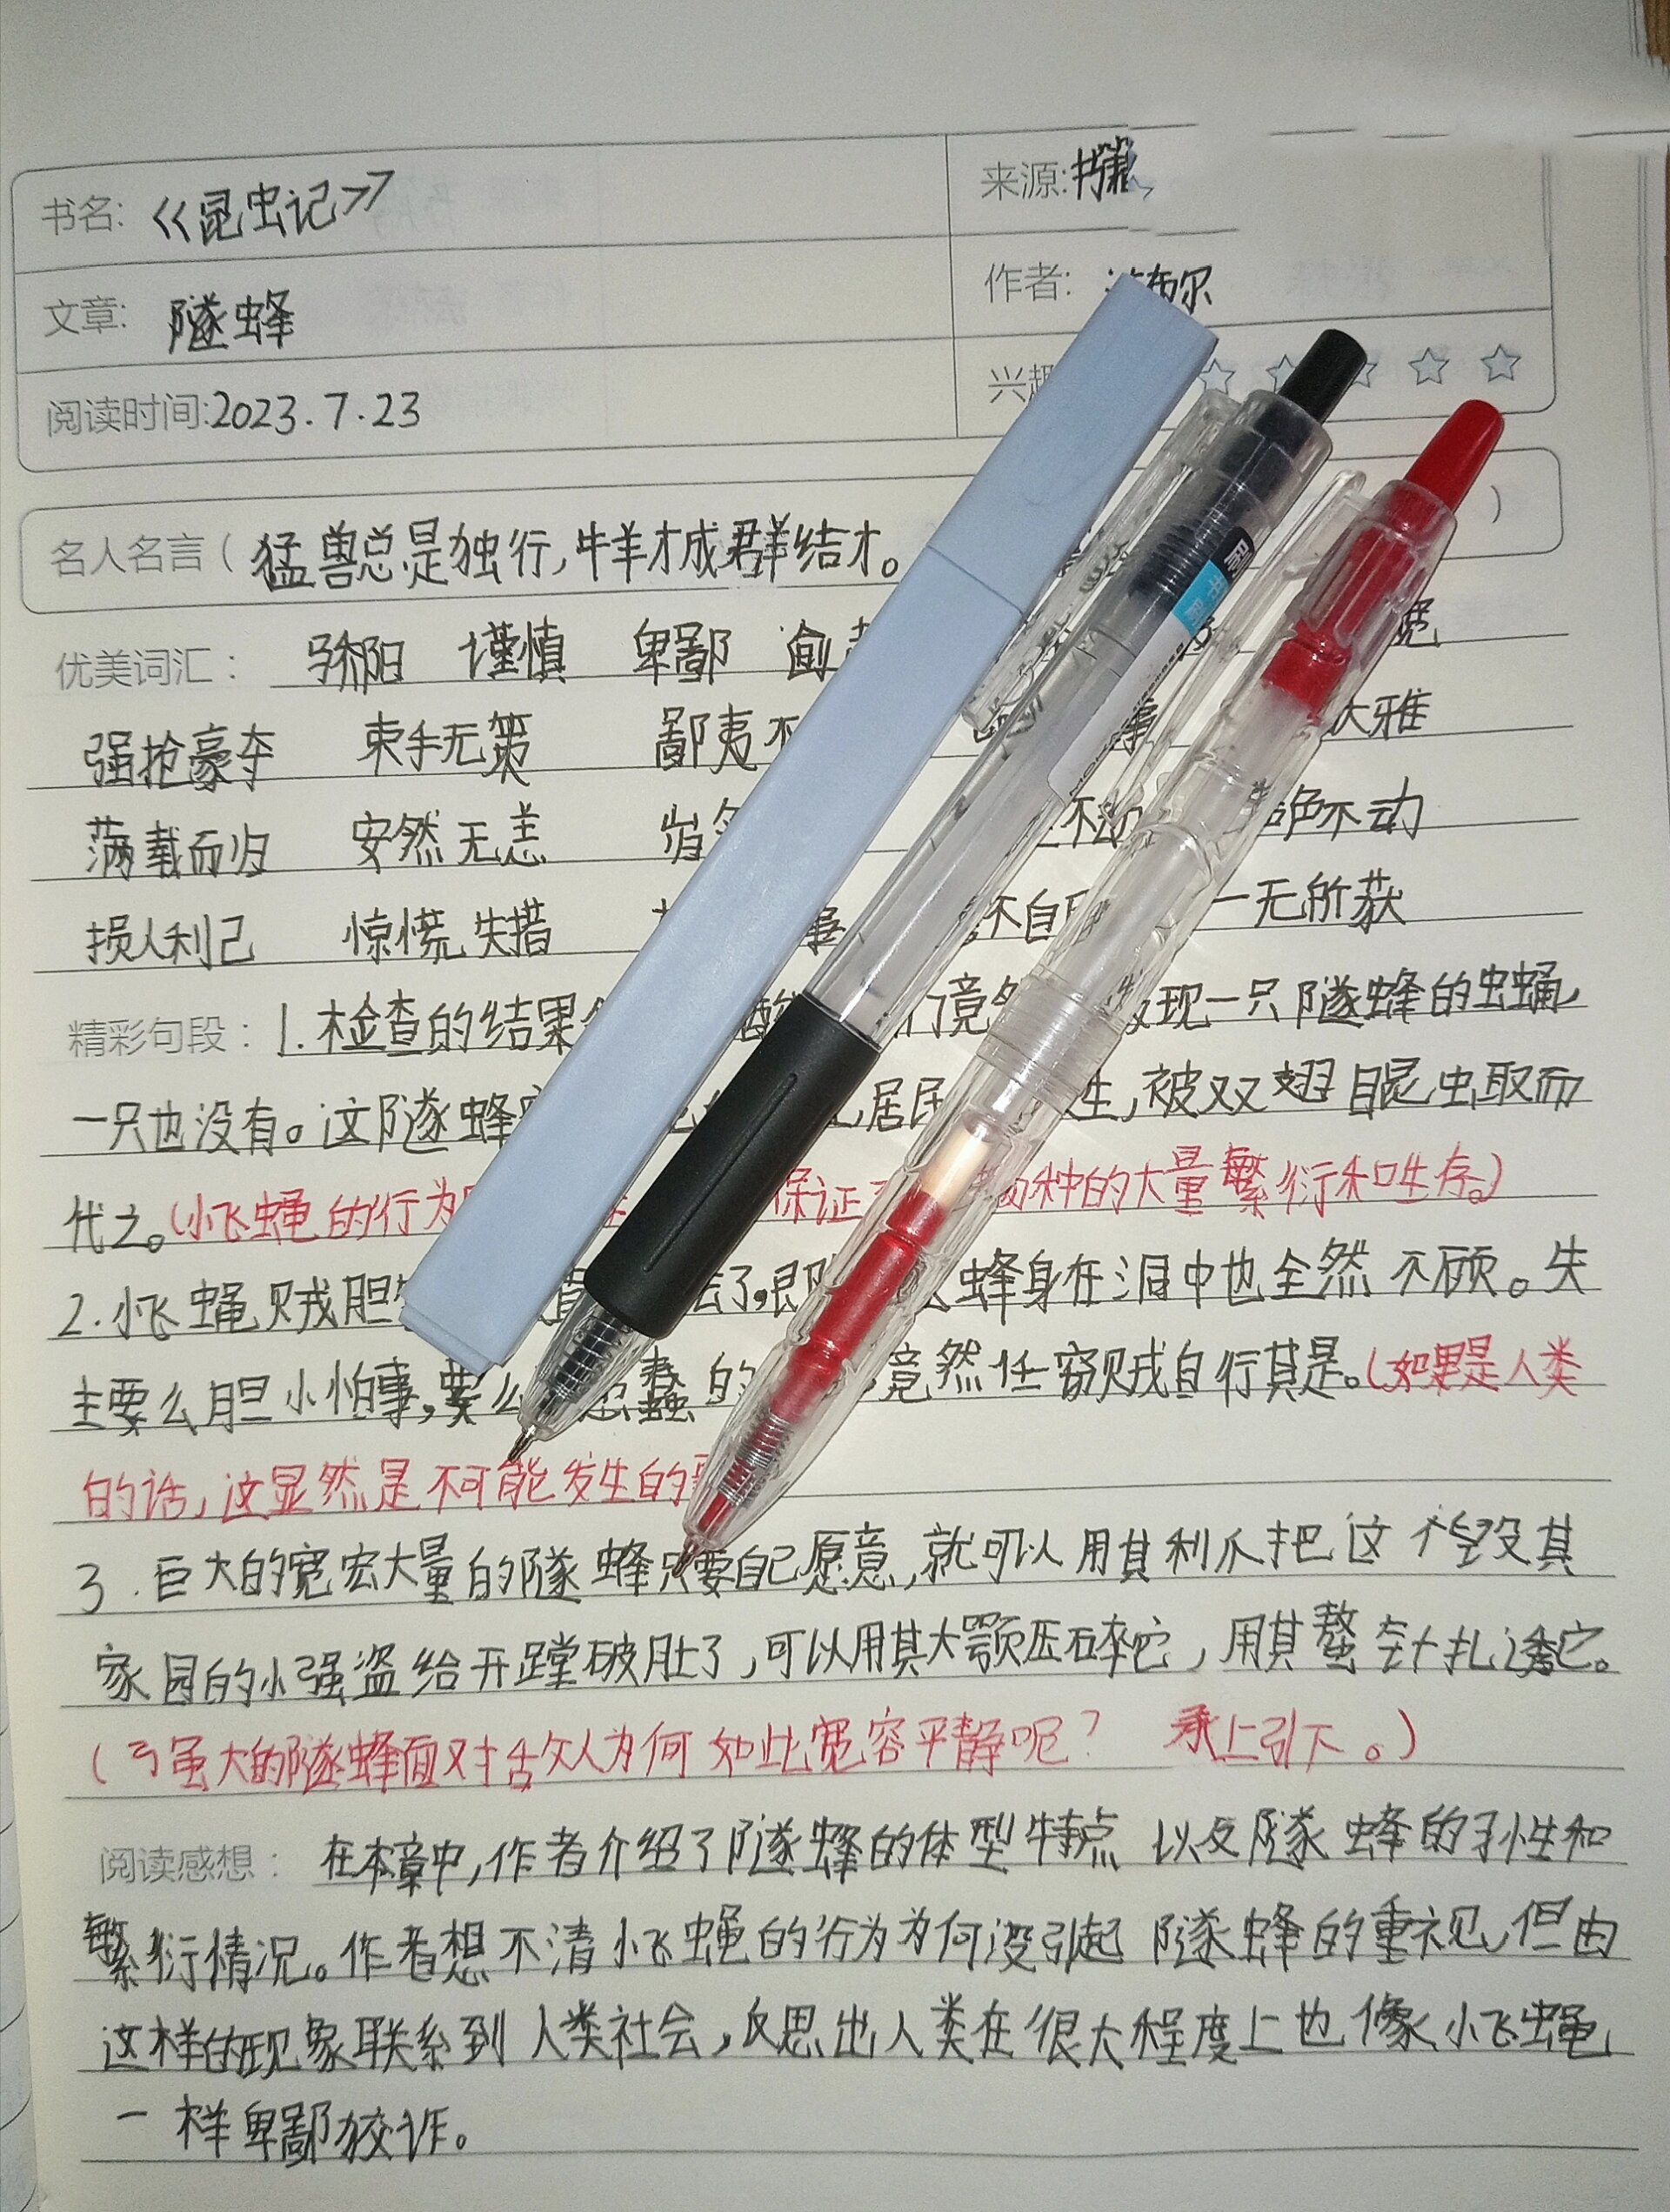 书名: 《昆虫记》
来源:
文章: 隧蜂
作者: 法布尔
阅读时间:2023.7.23
兴趣
名人名言( 猛兽总是独行,牛羊才成群结才。 )
优美词汇: 骄阳 谨慎 卑鄙
强抢豪夺 束手无策 鄙夷不 大雅
满载而归 安然无恙 绝不动
损人利己 惊慌失措 不自 一无所获
精彩句段: 1.检查的结果 竟 发现一只隧蜂的虫蛹,
一只也没有。这隧蜂 居民 生,被双翅目昆虫取而
代之。(小飞蝇的行为 保证 物种的大量繁衍和生存。)
2.小飞蝇贼胆 了,即 蜂身在洞中也全然不顾。失
主要么胆小怕事,要么 蠢的 竟然任窃贼自行其是。(如果是人类
的话,这显然是不可能发生的
3.巨大的宽宏大量的隧蜂只要自己愿意,就可以用其利爪把这个毁其
家园的小强盗给开膛破肚了,可以用其大颚压碎它,用其螯针扎透它。
(强大的隧蜂面对敌人为何如此宽容平静呢? 承上引下。)
阅读感想: 在本章中,作者介绍了隧蜂的体型特点以及隧蜂的习性和
繁衍情况。作者想不清小飞蝇的行为为何没引起隧蜂的重视,但由
这样的现象联系到人类社会,反思出人类在很大程度上也像小飞蝇
一样卑鄙狡诈。